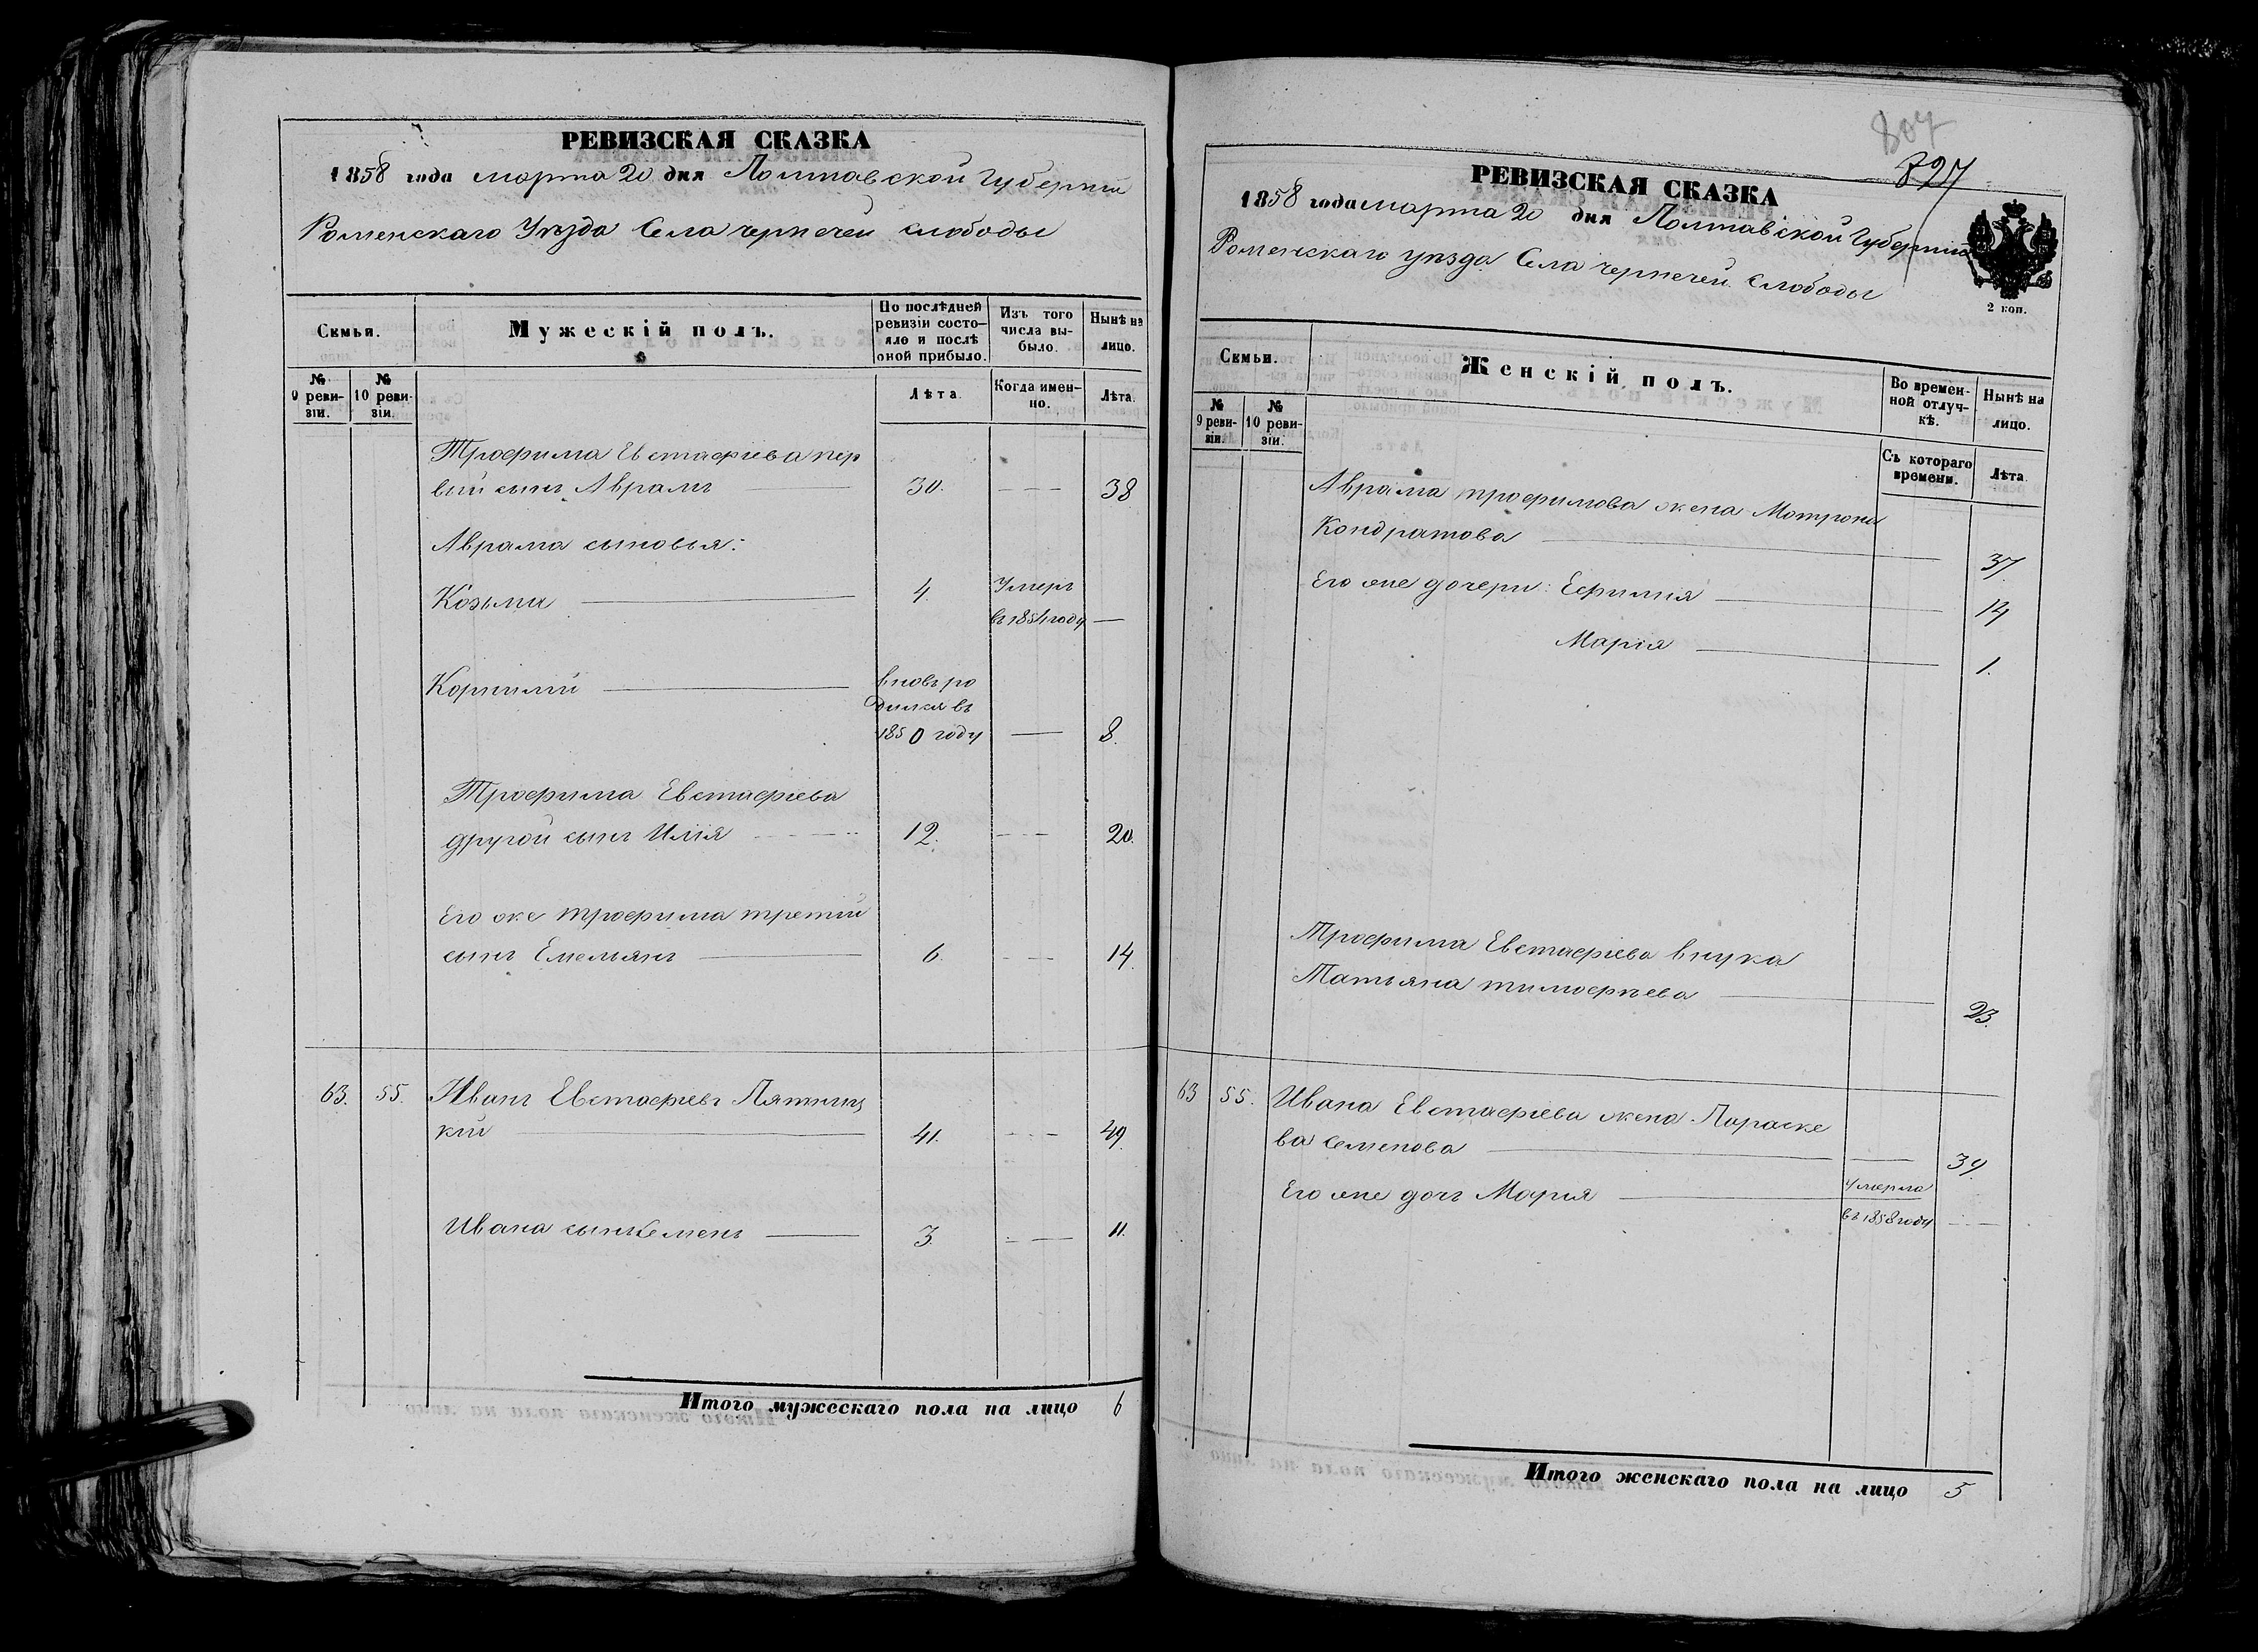 РЕВИЗСКАЯ СКАЗКА
1858 года марта 20 дня Полтавской Губернии
Роменскаго Уѣзда Села чернечей слободы
Семьи.
Мужескій полъ.
По послѣдней ревизіи состояло и послѣ оной прибыло.
Изъ того числа выбыло.
Нынѣ на лицо.
№ 9 ревизіи.
№ 10 ревизіи.
Лѣта.
Когда именно.
Лѣта.
Трофима Евстафіева пер
вый сынъ Аврамъ 30. 38
Аврама сыновья:
Козьма 4. Умеръ
въ 1854 году
Корнилій вновь ро
дился въ
1850 году 8.
Трофима Евстафіева
другой сынъ Илія 12. 20.
Его же трофима третій
сынъ Емельянъ 6. 14.
63. 55. Иванъ Евстафіевъ Пятниц
кій 41. 49.
Ивана сынъ Семенъ 3. 11.
Итого мужескаго пола на лицо 6
807
827
РЕВИЗСКАЯ СКАЗКА
1858 года марта 20 дня Полтавской Губерніи
Роменскаго уѣзда Села чернечей слободы
2 коп.
Семьи.
Женскій полъ.
Во временной отлучкѣ.
Нынѣ на лицо.
№ 9 ревизіи.
№ 10 ревизіи.
Съ котораго времени.
Лѣта.
Аврама трофимова жена Мотрона
Кондратова 37.
Его же дочери: Ефимія 14
Марія 1.
Трофима Евстафіева внука
Татьяна тимофѣева 23.
63 55. Ивана Евстафіева жена Параске
ва Семенова 39.
Его же дочь Марія Умерла
въ 1858 году
Итого женскаго пола на лицо 5